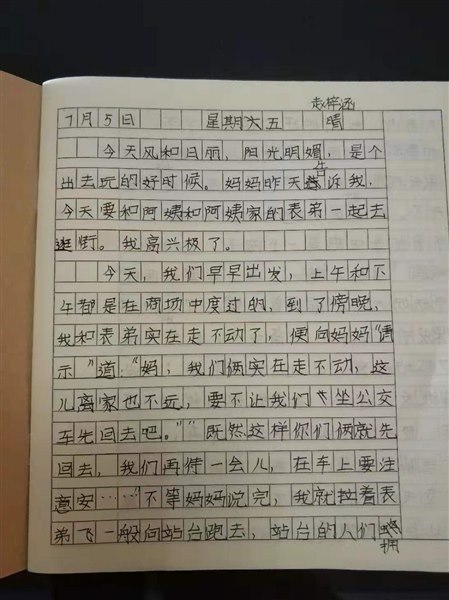 赵梓涵
7月5日 星期五 晴
今天风和日丽，阳光明媚，是个
出去玩的好时候。妈妈昨天告诉我，
今天要和阿姨和阿姨家的表弟一起去
逛街。我高兴极了。
今天，我们早早出发，上午和下
午都是在商场中度过的，到了傍晚，
我和表弟实在走不动了，便向妈妈“请
示”道：“妈，我们俩实在走不动，这
儿离家也不远，要不让我们坐公交
车先回去吧。”“既然这样你们俩就先
回去，我们再待一会儿，在车上要注
意安……”不等妈妈说完，我就拉着表
弟飞一般向站台跑去，站台的人们拥